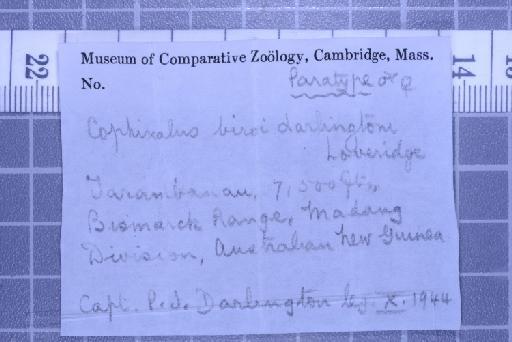 22
14
Museum of Comparative Zoölogy, Cambridge, Mass.
No.
Paratype ♂ ♀
Cophixalus biroi darlingtoni
Loveridge
7,500 ft.,
Bismarck Range, Madang
Division, Australian New Guinea
Capt. P.J. Darlington leg. X. 1944